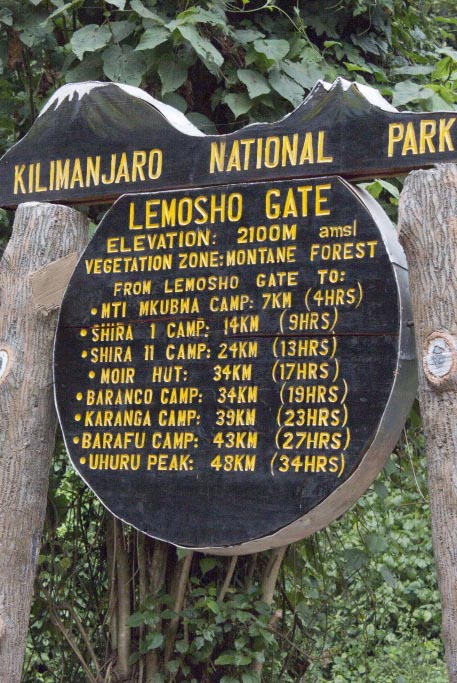 KILIMANJARO NATIONAL PARK
LEMOSHO GATE
ELEVATION: 2100M amsl
VEGETATION ZONE: MONTANE FOREST
FROM LEMOSHO GATE TO:
• MTI MKUBWA CAMP: 7KM (4HRS)
• SHIRA 1 CAMP: 14KM (9HRS)
• SHIRA 11 CAMP: 24KM (13HRS)
• MOIR HUT: 34KM (17HRS)
• BARANCO CAMP: 34KM (19HRS)
• KARANGA CAMP: 39KM (23HRS)
• BARAFU CAMP: 43KM (27HRS)
• UHURU PEAK: 48KM (34HRS)